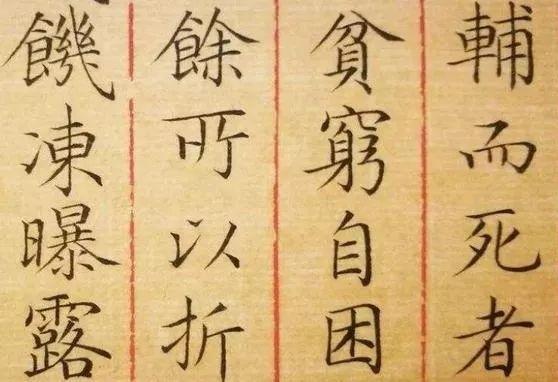 輔而死者
貧窮自困
餘所以折
饑凍曝露